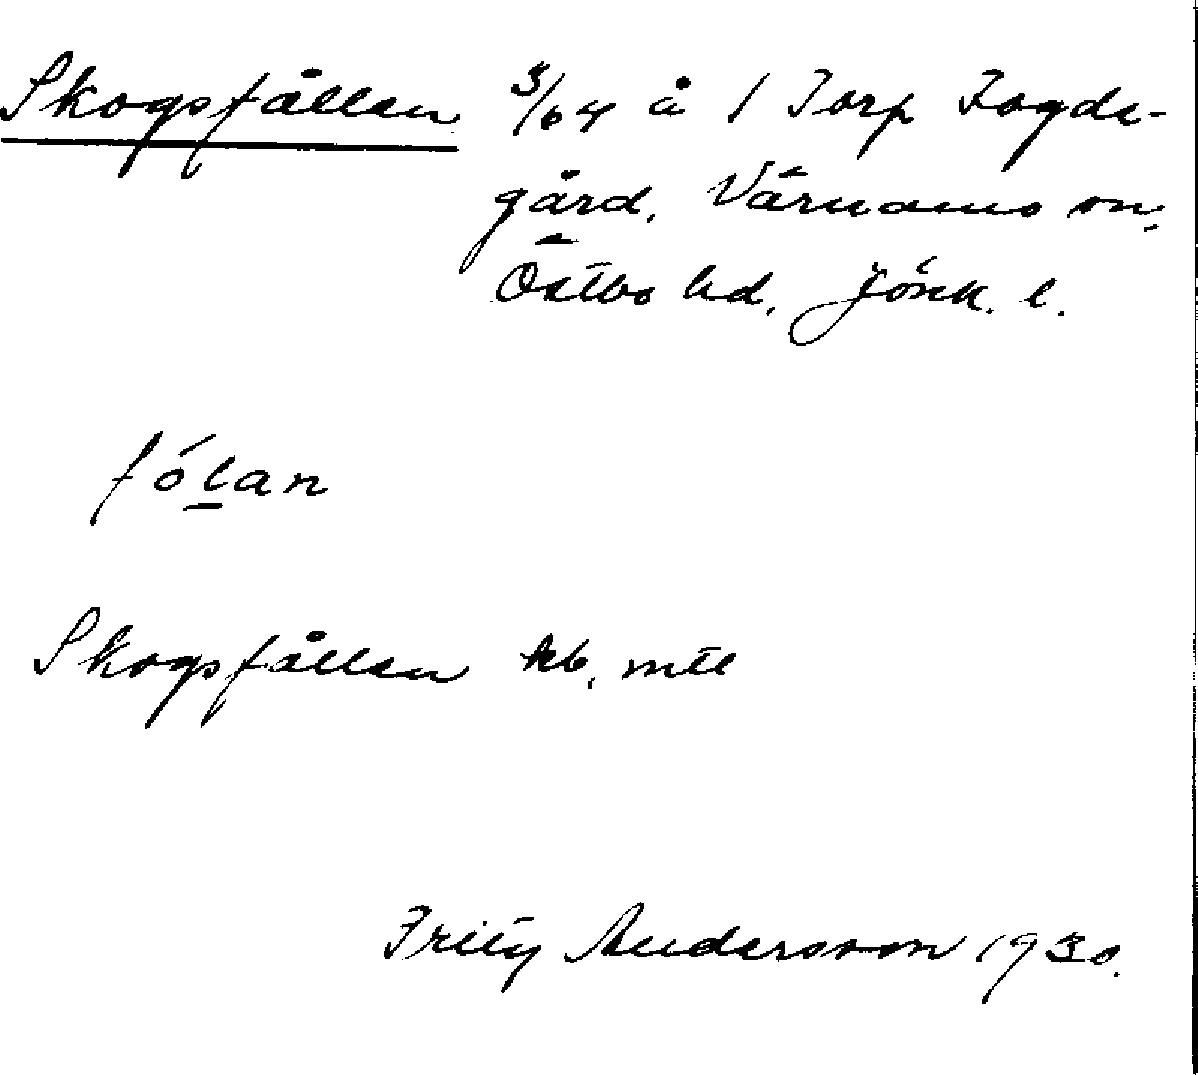 Skogsfållen 3/64 å 1 Torp Fogde-
gård, Värnamo sn,
Östbo hd, Jönk. l.
fólan
Skogsfållen kb, mtl
Fritz Andersson 1930.